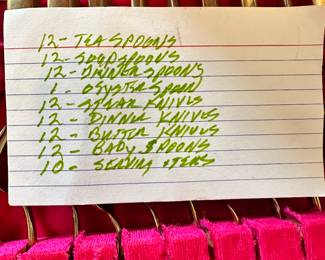 12- TEA SPOONS
12- SOUP SPOONS
12- DINNER SPOONS
1- OSYSTER SPOON
12- STEAK KNIVES
12- DINNER KNIVES
12- BUTTER KNIVES
12- BABY SPOONS
10- SERVING ITEMS